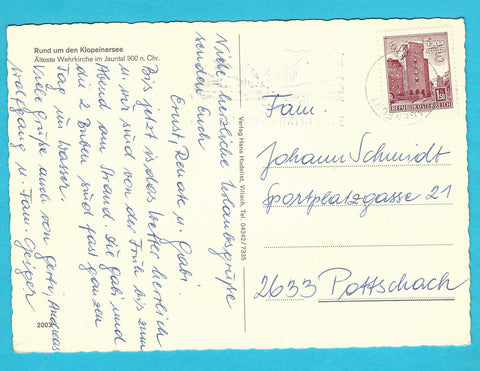 Rund um den Klopeinersee
Älteste Wehrkirche im Jauntal 900 n. Chr.
Viele herzliche Urlaubsgrüße
senden Euch
Ernst, Renate u. Gabi.
Bis jetzt ist das Wetter herrlich
u. wir sind von der Früh bis zum
Abend am Strand. Die Gabi und
die 2 Buben sind fast ganzen
Tag im Wasser.
Viele Grüße auch von Gerti, Andreas
Wolfgang u. Fam. Geiger
2003
Verlag Hans Hudelist, Villach, Tel. 04242/7335
REPUBLIK ÖSTERREICH
1.50
Fam.
Johann Schmidt
Sportplatzgasse 21
2633 Pottschach